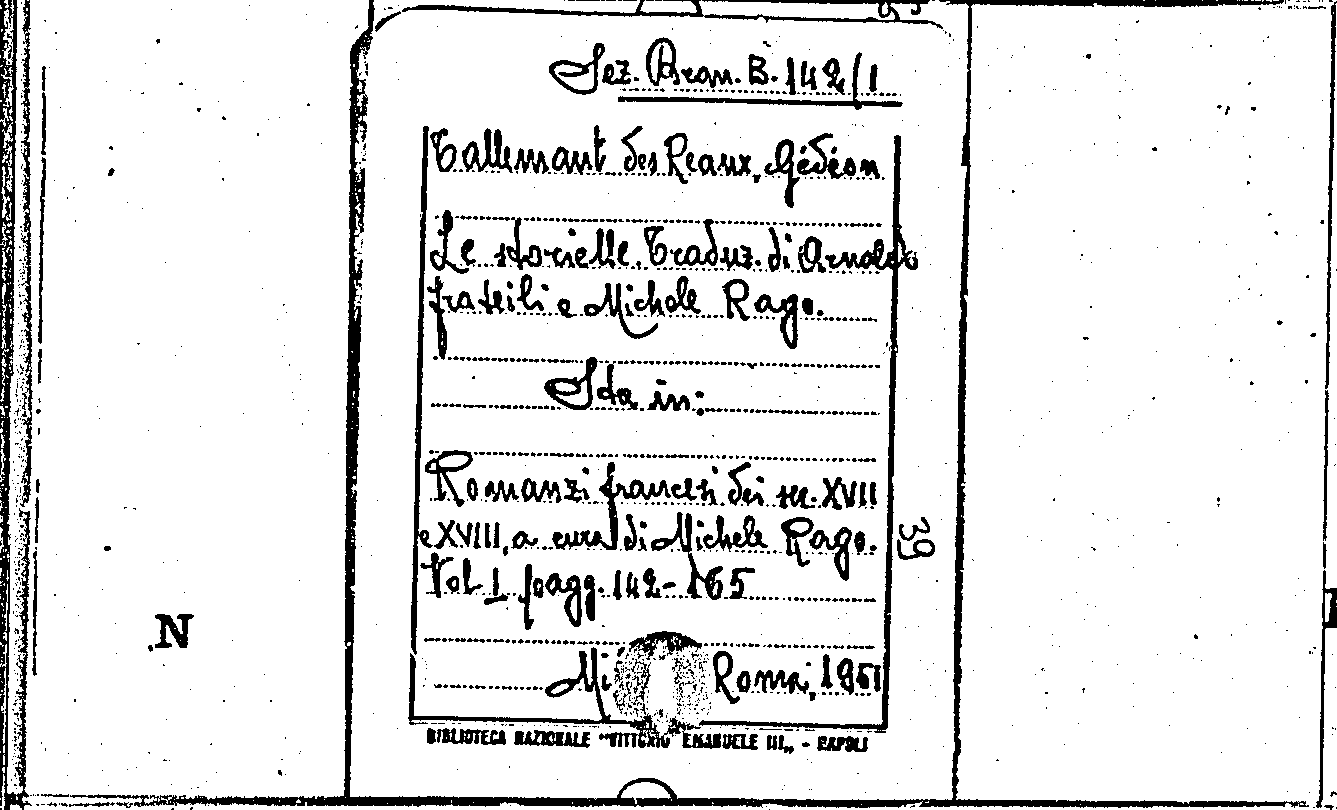 Sez. Bran. B. 142/1
Tallemant des Reaux, Gédéon
Le storielle. Traduz. di Arnaldo
frateili e Michele Rago.
Sta in:
Romanzi francesi dei sec. XVII
e XVIII, a cura di Michele Rago.
Vol I pagg. 142-165
39
N
Roma, 1951
BIBLIOTECA NAZIONALE "VITTORIO EMANUELE III„ - NAPOLI